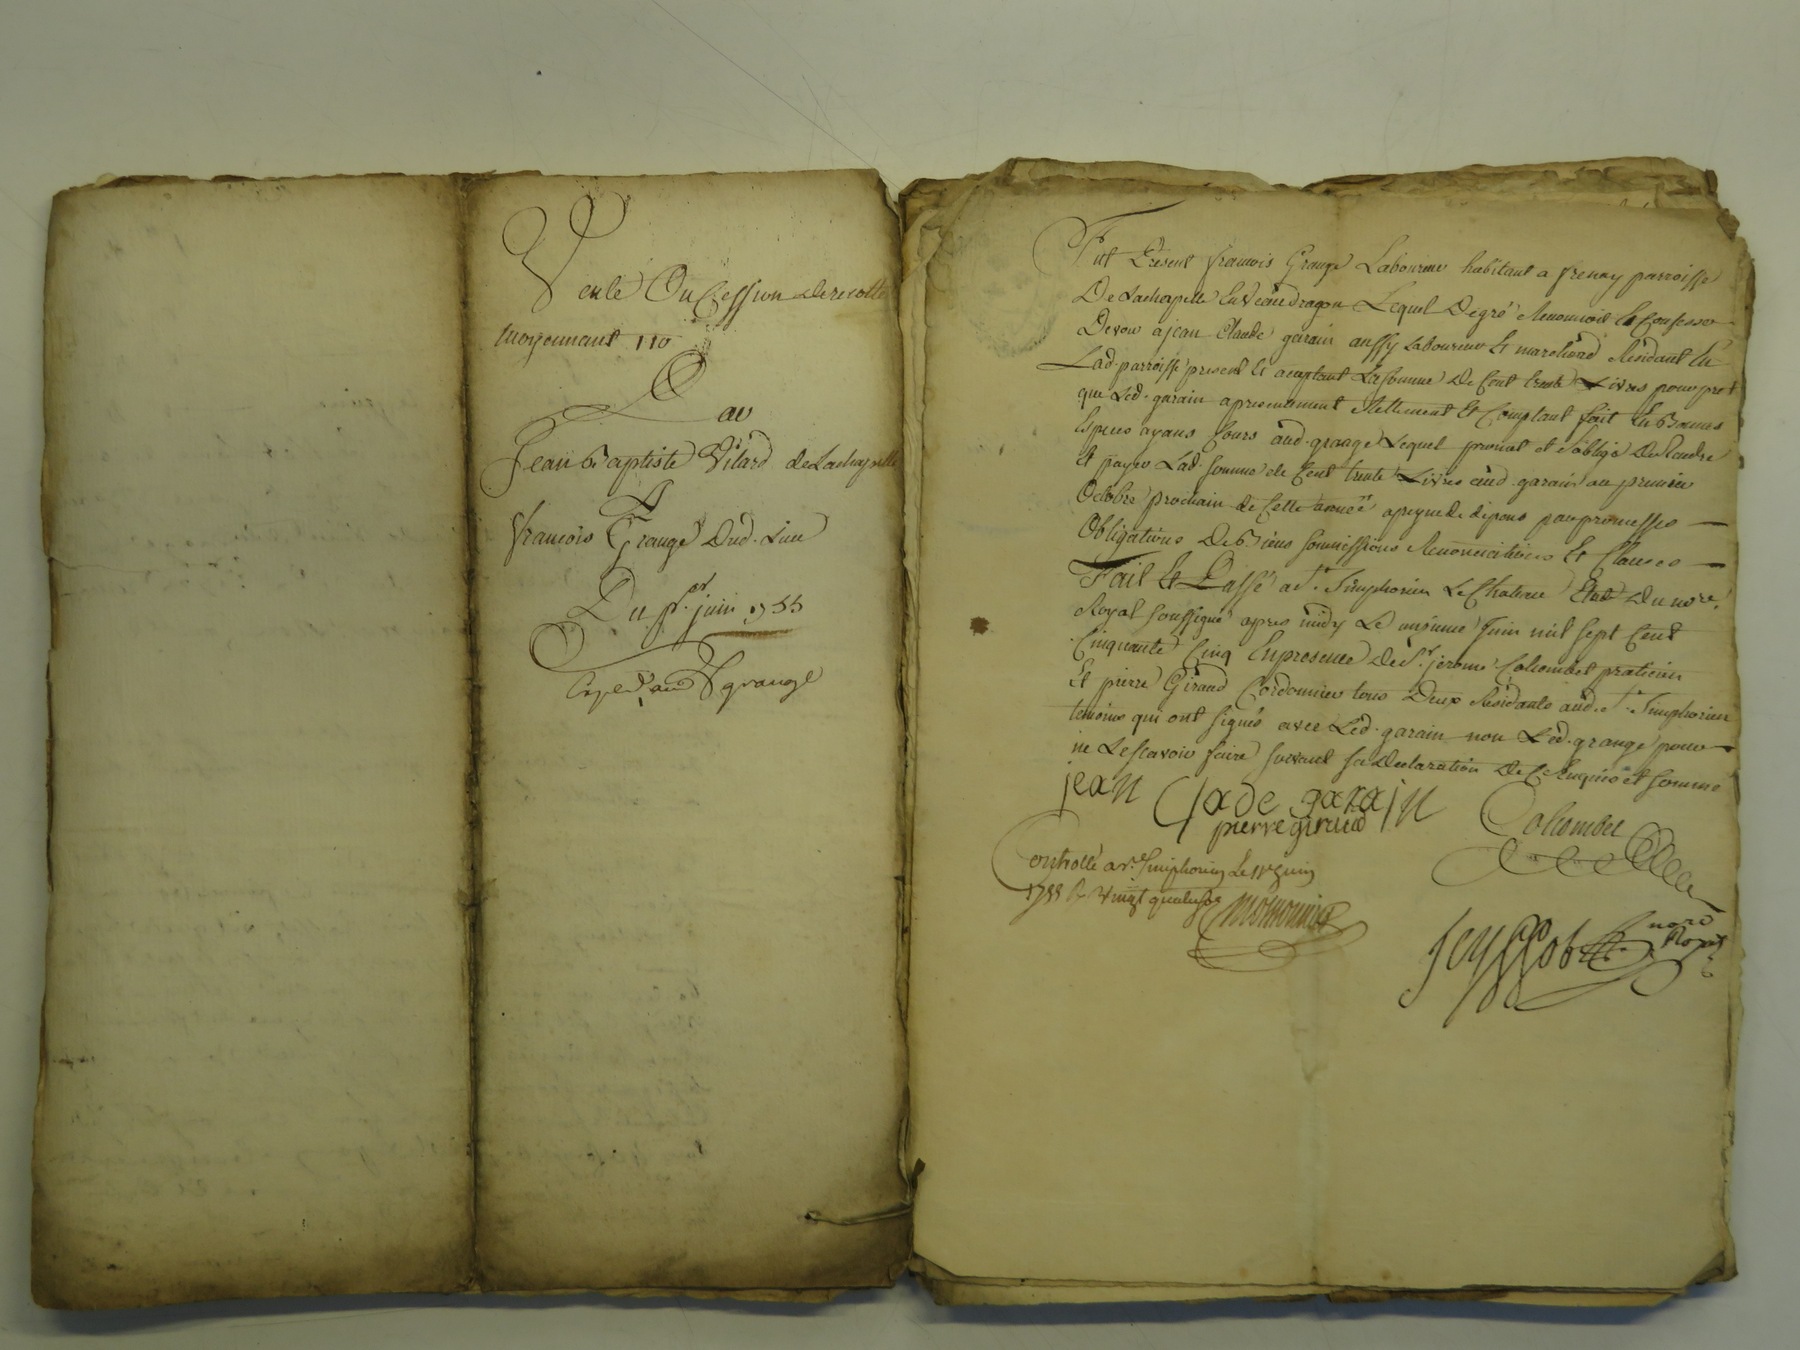 Vente Ou Cession de recolte
moyonnant 110
Par
Jean Baptiste Vilard de Lachapelle
A
francois Grange Dud. Lieu
Du pr. juin 1755
Exped. aud grange
Fut Présent francois Grange Laboureur habitant a frenay parroisse
De Lachapelle En Vaudragon Lequel De gré Reconnoit Et Confesse
Devoir a jean Claude garain aussy Laboureur Et marchand Résidant En
Lad. parroisse present Et acceptant La somme De Cent trente Livres pour pret
que Led. garain a presentement Réellement Et Comptant fait En Bonnes
Especes ayans Cours aud. grange Lequel promet et s'oblige De Rendre
Et payer Lad. somme de Cent trente Livres aud. garain au premier
Octobre prochain de Cette année a peyne de dépens par promesses
Obligations De Biens soumissions Renonciations Et Clauses
Fait Et Passé a St. Simphorien Le Chateau Etude Du nore.
Royal soussigné apres midy Le onzieme Juin mil sept Cent
Cinquante Cinq En presence De Sr. jerome Colombet praticien
Et pierre Giraud Cordonnier tous Deux Résidants aud. St. Simphorien
temoins qui ont signés avec Led. garain non Led. grange pour
ne Le scavoir faire suivant sa Declaration De Ce Enquis et sommé
jean Clade garain
pierre giraud
Colombet
Controllé a St. Simphorien Le 11e Juin
1755 R. Vingt quatre sols
nore
Royal